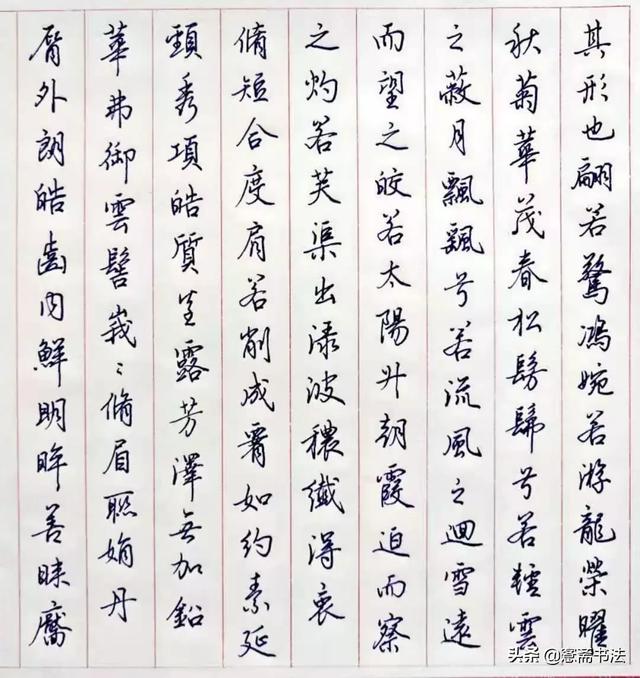 其形也翩若驚鴻婉若游龍榮曜
秋菊華茂春松髣髴兮若輕雲
之蔽月飄飄兮若流風之迴雪遠
而望之皎若太陽升朝霞迫而察
之灼若芙渠出淥波穠纖得衷
脩短合度肩若削成腰如約素延
頸秀項皓質呈露芳澤無加鉛
華弗御雲髻峩〻脩眉聯娟丹
脣外朗皓齒內鮮明眸善睞靨
头条@憲斋书法